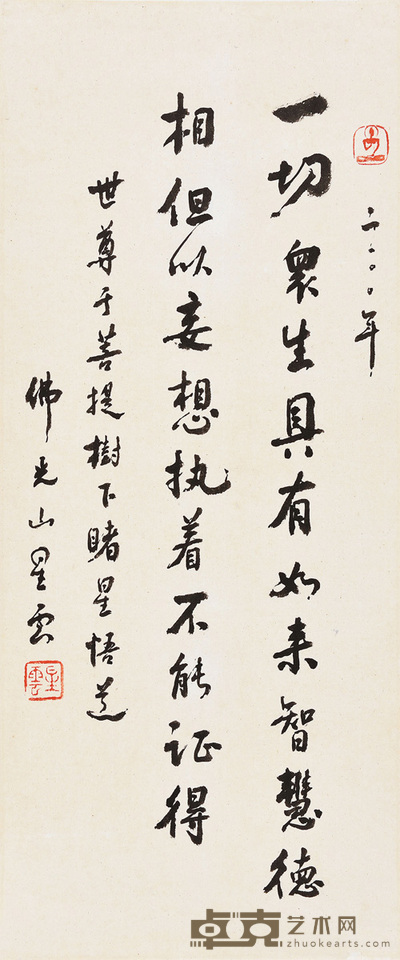 二〇〇〇年
一切衆生具有如来智慧德
相但以妄想执着不能证得
世尊于菩提樹下睹星悟道
佛光山星雲
星雲
卓克艺术网
zhuokearts.com